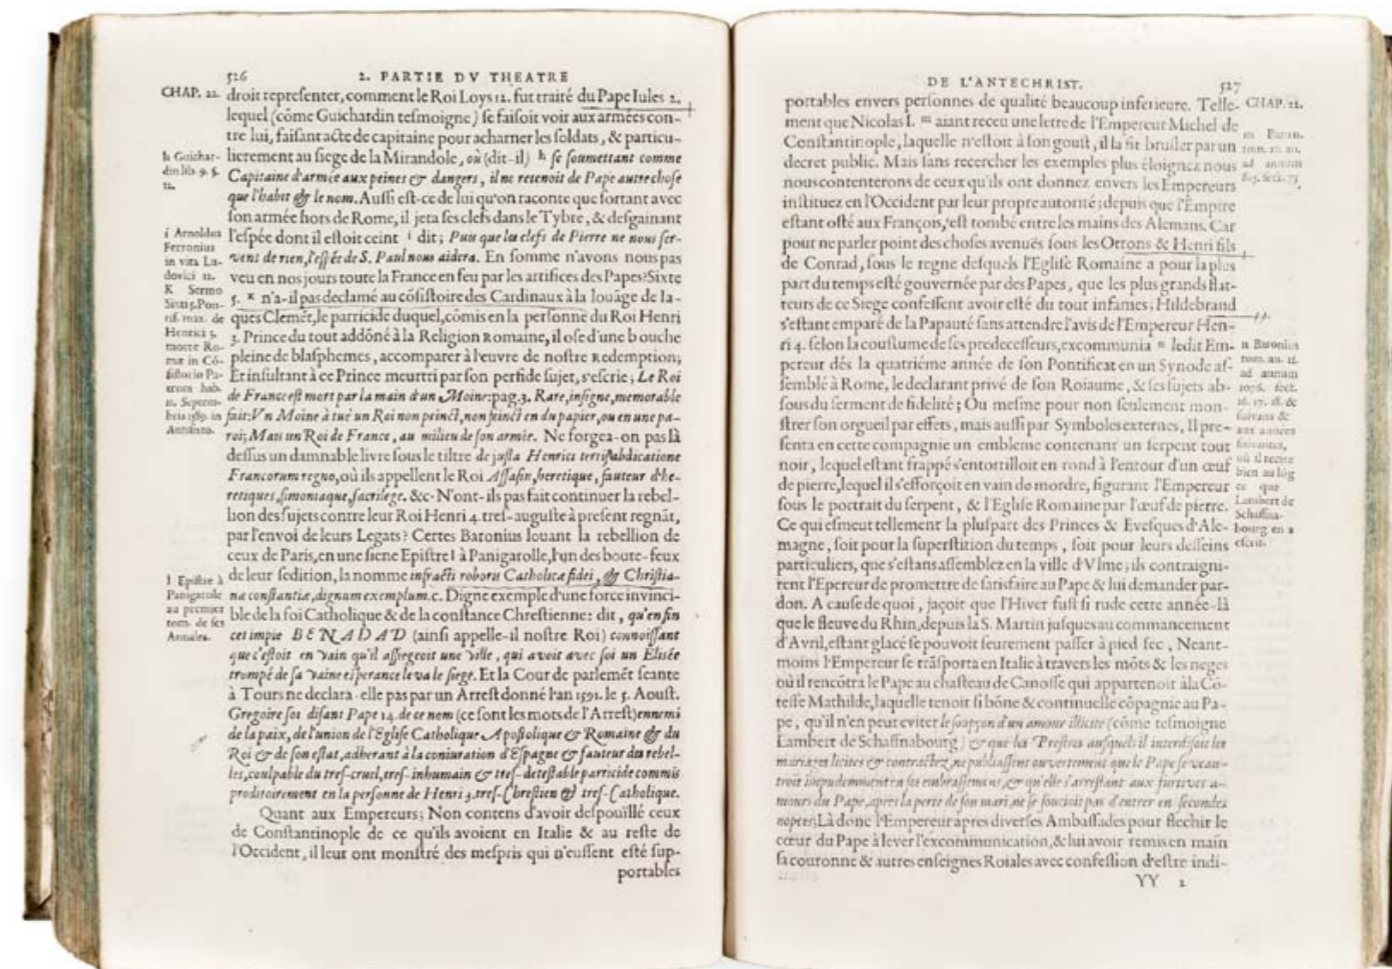 526
2. PARTIE DV THEATRE
CHAP. 22.
droit representer, comment le Roi Loys 12. fut traité du Pape Iules 2.
lequel (cõme Guichardin tesmoigne) se faisoit voir aux armées con-
tre lui, faisant acte de capitaine pour acharner les soldats, & particu-
lierement au siege de la Mirandole, où (dit-il) h se soumettant comme
Capitaine d'armée aux peines & dangers, il ne retenoit de Pape autre chose
que l'habit & le nom. Aussi est-ce de lui qu'on raconte que sortant avec
son armée hors de Rome, il jeta ses clefs dans le Tybre, & desgainant
l'espée dont il estoit ceint i dit; Puis que les clefs de Pierre ne nous ser-
vent de rien, l'espée de S. Paul nous aidera. En somme n'avons nous pas
veu en nos jours toute la France en feu par les artifices des Papes? Sixte
5. K n'a-il pas declamé au cõsistoire des Cardinaux à la louãge de Ia-
ques Clemẽt, le parricide duquel, cõmis en la personne du Roi Henri
3. Prince du tout addõné à la Religion Romaine, il ose d'une bouche
pleine de blasphemes, accomparer à l'euvre de nostre Redemption;
Et insultant à ce Prince meurtri par son perfide sujet, s'escrie; Le Roi
de France est mort par la main d'un Moine: pag. 3. Rare, insigne, memorable
fait: Vn Moine à tué un Roi non peinct, non feinct en du papier, ou en une pa-
roi; Mais un Roi de France, au milieu de son armée. Ne forgea-on pas là
dessus un damnable livre sous le tiltre de justa Henrici tertii abdicatione
Francorum regno, où ils appellent le Roi Assasin, heretique, fauteur d'he-
retiques, simoniaque, sacrilege. &c. N'ont-ils pas fait continuer la rebel-
lion des sujets contre leur Roi Henri 4. tres-auguste à present regnãt,
par l'envoi de leurs Legats? Certes Baronius louant la rebellion de
ceux de Paris, en une siene Epistre l à Panigarolle, l'un des boute-feux
de leur sedition, la nomme infracti roboris Catholicæ fidei, & Christia-
næ constantiæ, dignum exemplum. c. Digne exemple d'une force invinci-
ble de la foi Catholique & de la constance Chrestienne: dit, qu'en fin
cet impie BENADAD (ainsi appelle-il nostre Roi) connoissant
que c'estoit en vain qu'il assiegeoit une ville, qui avoit avec soi un Elisée
trompé de sa vaine esperance leva le siege. Et la Cour de parlemẽt seante
à Tours ne declara-elle pas par un Arrest donné l'an 1591. le 5. Aoust.
Gregoire soi disant Pape 14. de ce nom (ce sont les mots de l'Arrest) ennemi
de la paix, de l'union de l'Eglise Catholique Apostolique & Romaine & du
Roi & de son estat, adherant à la coniuration d'Espagne & fauteur des rebel-
les, coulpable du tres-cruel, tres-inhumain & tres-detestable parricide commis
proditoirement en la personne de Henri 3. tres-Chrestien & tres-Catholique.
Quant aux Empereurs; Non contens d'avoir despouillé ceux
de Constantinople de ce qu'ils avoient en Italie & au reste de
l'Occident, il leur ont monstré des mespris qui n'eussent esté sup-
portables
h Guichar-
din lib. 9. §.
i Arnoldus
Ferronius
in vita Lu-
dovici 12.
K Sermo
Sixti 5. Pon-
tif. max. de
Henrici 3.
morte Ro-
mæ in Cõ-
sistorio Pa-
trum hab.
11. Septem-
bris 1589. in
l Epistre à
Panigarole
au premier
tom. de ses
Annales.
DE L'ANTECHRIST.
527
CHAP. 22.
portables envers personnes de qualité beaucoup inferieure. Telle-
ment que Nicolas I. m aiant receu une letre de l'Empereur Michel de
Constantinople, laquelle n'estoit à son goust, il la fit brusler par un
decret public. Mais sans recercher les exemples plus éloignez nous
nous contenterons de ceux qu'ils ont donnez envers les Empereurs
instituez en l'Occident par leur propre autorité; depuis que l'Empire
estant osté aux François, est tombé entre les mains des Alemans. Car
pour ne parler point des choses avenues sous les Ottons & Henri fils
de Conrad, sous le regne desquels l'Eglise Romaine a pour la plus
part du temps esté gouvernée par des Papes, que les plus grands flat-
teurs de ce Siege confessent avoir esté du tout infames; Hildebrand
s'estant emparé de la Papauté sans attendre l'avis de l'Empereur Hen-
ri 4. selon la coustume de ses predecesseurs, excommunia n ledit Em-
pereur dés la quatriéme année de son Pontificat en un Synode as-
semblé à Rome, le declarant privé de son Roiaume, & ses sujets ab-
sous du serment de fidelité; Ou mesme pour non seulement mon-
strer son orgueil par effets, mais aussi par Symboles externes, Il pre-
senta en cette compagnie un embleme contenant un serpent tout
noir, lequel estant frappé s'entortilloit en rond à l'entour d'un œuf
de pierre, lequel il s'efforçoit en vain de mordre, figurant l'Empereur
sous le portrait du serpent, & l'Eglise Romaine par l'œuf de pierre.
Ce qui esmeut tellement la pluspart des Princes & Evesques d'Ale-
magne, soit pour la superstition du temps, soit pour leurs desseins
particuliers, que s'estans assemblez en la ville d'Vlme; ils contraigni-
rent l'Epereur de promettre de satisfaire au Pape & lui demander par-
don. A cause de quoi, jaçoit que l'Hiver fust si rude cette année-là
que le fleuve du Rhin, depuis la S. Martin jusques au commancement
d'Avril, estant glacé se pouvoit seurement passer à pied sec, Neant-
moins l'Empereur se trãsporta en Italie à travers les mõts & les neges
où il rencõtra le Pape au chasteau de Canosse qui appartenoit à la Cõ-
tesse Mathilde, laquelle tenoit si bõne & continuelle cõpagnie au Pa-
pe, qu'il n'en peut eviter le soupçon d'un amour illicite (cõme tesmoigne
Lambert de Schaffnabourg) & que les Prestres ausquels il interdisoit les
mariages licites & contractez, ne publiassent ouvertement que le Pape se veau-
troit impudemment en ses embrassemens, & qu'elle s'arrestant aux furtives a-
mours du Pape, apres la perte de son mari, ne se soucioit pas d'entrer en secondes
nopces; Là donc l'Empereur apres diverses Ambassades pour flechir le
cœur du Pape à lever l'excommunication, & lui avoir remis en main
sa couronne & autres enseignes Roiales avec confession d'estre indi-
YY 2
m Baron.
ad annum
n Baronius
tom. an. 11.
ad annum
1076. sect.
16. 17. 18. &
suivans &
aux années
suivantes,
où il recite
bien au lõg
ce que
Lambert de
Schaffna-
bourg en a
escrit.